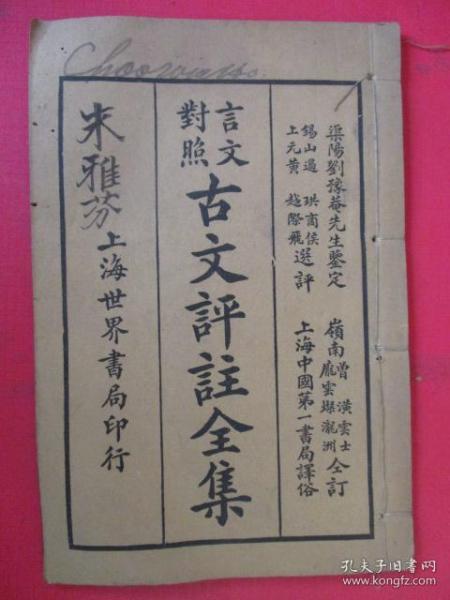 渠陽劉豫菴先生鑒定
錫山過珙商侯
上元黃越際飛
選評
嶺南
曾潢雲士
龐雲燦瀧洲
仝訂
上海中國第一書局譯俗
言文
對照
古文評註全集
朱雅芬
上海世界書局印行
孔夫子旧书网
www.kongfz.com